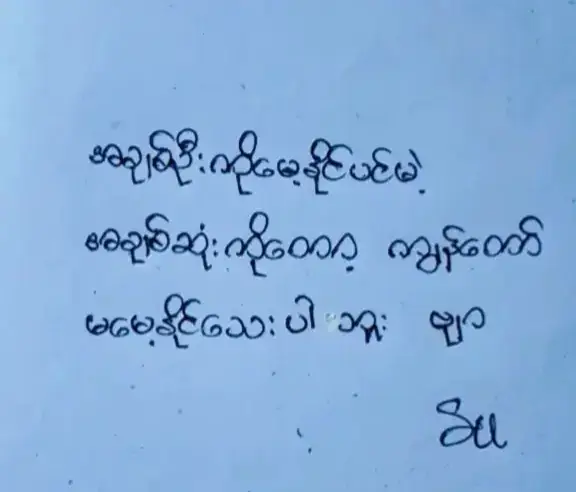 အချစ်ဦးကိုမေ့နိုင်ပင်မဲ့
အချစ်ဆုံးကိုတော့ ကျွန်တော်
မမေ့နိုင်သေးပါ ဘူး ဗျာ